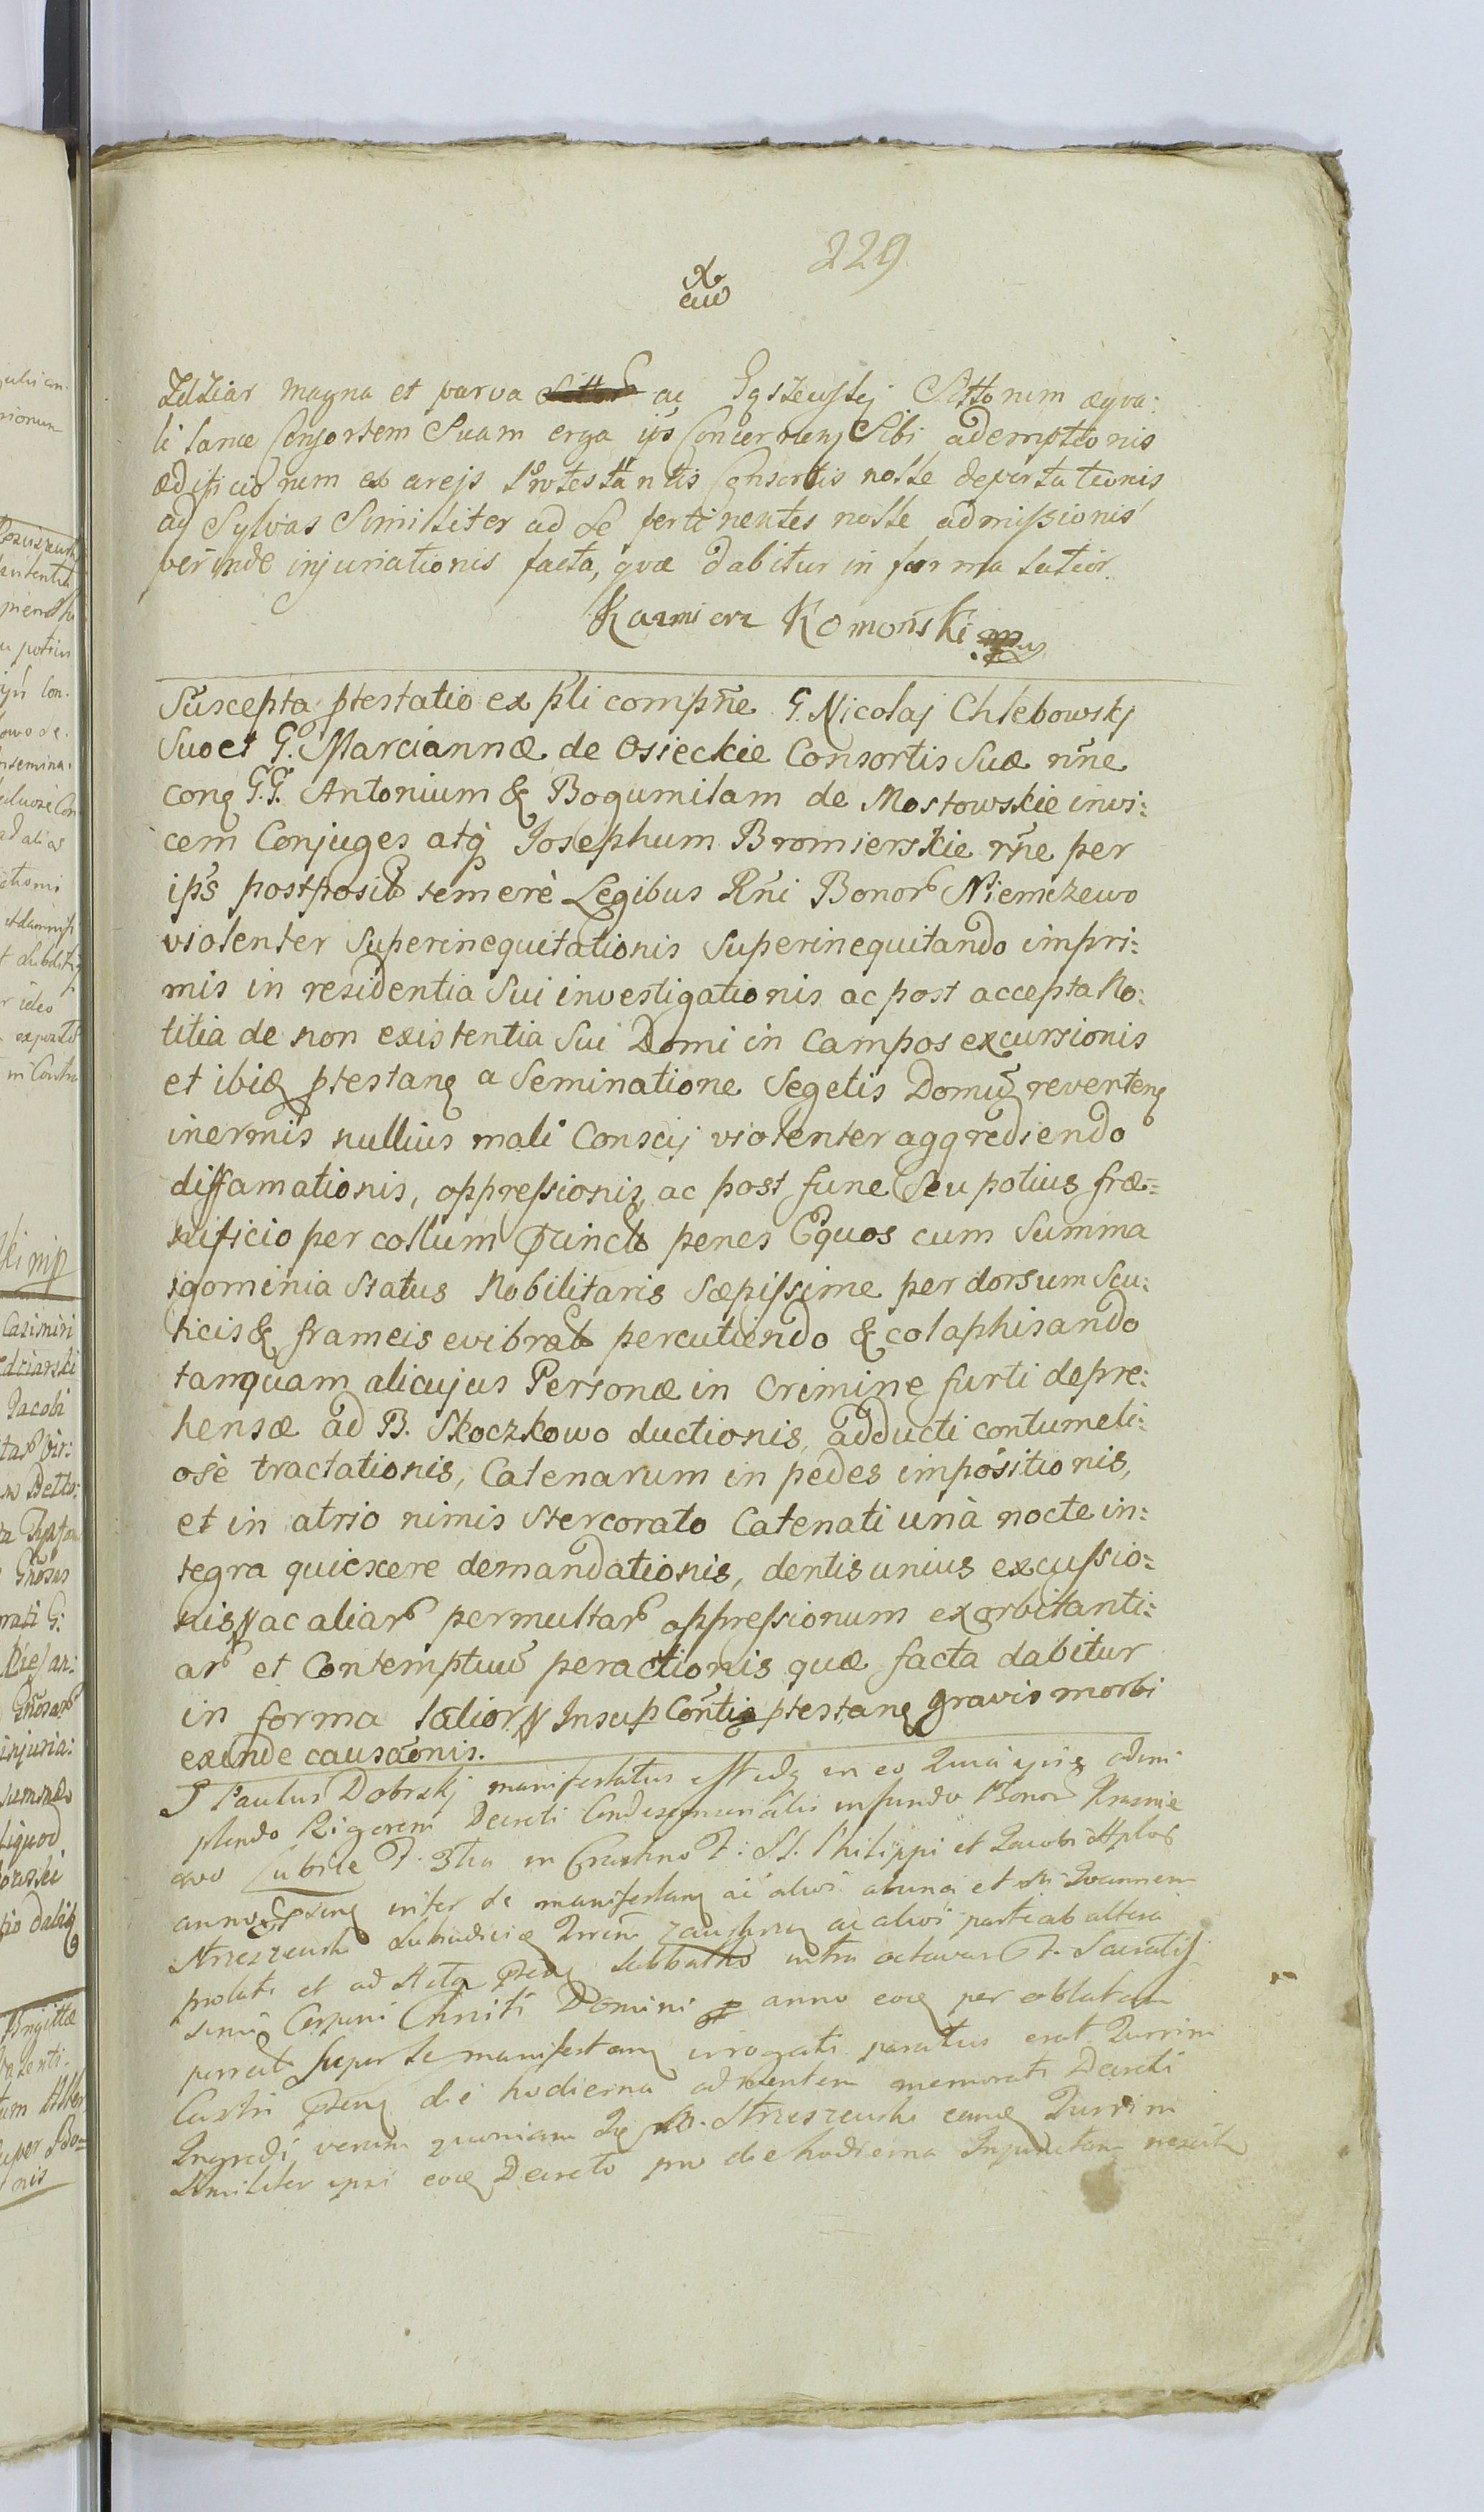 229
Zdziar magna et parva ac Sittorum æqva:
li lance Consortem Suam erga ijs Concernen Sibi ademptionis
ædificiorum ex areis Protestantis Consortis nolle deportationis
ac Sylvas Similiter ad Se pertinentes nolle admissionis
perinde injuriationis facta, qvæ dabitur in forma latior.
Kazmierz Komoński mp
Suscepta ptestatio ex pli compñe G. Nicolaj Chlebowskj
Suo et G. Mariannæ de Osieckie Consortis Suæ nñe
conq G.G. Antonium & Bogumilam de Mostowskie invi:
cem Conjuges atq Josephum Bromierskie rñe per
ips postposit temerè Legibus Rñi Bonor Niemczewo
violenter Superinequitationis Superinequitando impri:
mis in residentia Sui investigationis ac post accepta No:
titia de non existentia Sui Domi in Campos excursionis
et ibiq ptestanq a Seminatione Segetis Domu revertenq
inermis nullius mali Conscij violenter aggrediendo
diffamationis, oppressionis, ac post fune Seu potius fræ=
nificio per collum Vincto penes Equos cum Summa
igominia Status Nobilitaris Sæpissime per dorsum Scu:
ticis & frameis evibrat percutiendo & colaphisando
tanquam alicujus Personæ in Crimine furti depre:
hensæ ad B. Skoczkowo ductionis, adducti contumeli:
osè tractationis, Catenarum in pedes impositionis,
et in atrio nimis Stercorato Catenati unà nocte in:
tegra quiescere demandationis, dentis unius excussio=
nis ac aliar permultar oppressionum exorbitanti:
ar et Contemptuũ peractionis quæ facta dabitur
in forma latior Insup Contiq ptestanq gravis morbi
exinde causaonis.
G Paulus Dobrskj manifestatus est idq in eo Quia ipse adim
plendo Rigorem Decreti Condescensorialis in fundo Bonor Krasnie
wo Lubice F. 3tia in Crastino F. SS. Philippi et Jacobi Aplor
anno psenq inter se manifestanq ac alios ab una et Joannem
Strzeszewsk ac alios parte ab altera
prolati et ad Acta psen Sabbatho intra octavas F. Sacratis
simi Corporis Christi Domini anno eoq per oblatam
porrecti Super Se manifestanq irrogati paratus erat Turrim
Castri psenq die hodierna ad mentem memorati Decreti
Ingredi verum quoniam Strzeszewski eanq Turrim
Similiter ipsi eoq Decreto pro die hodierna Injunctam